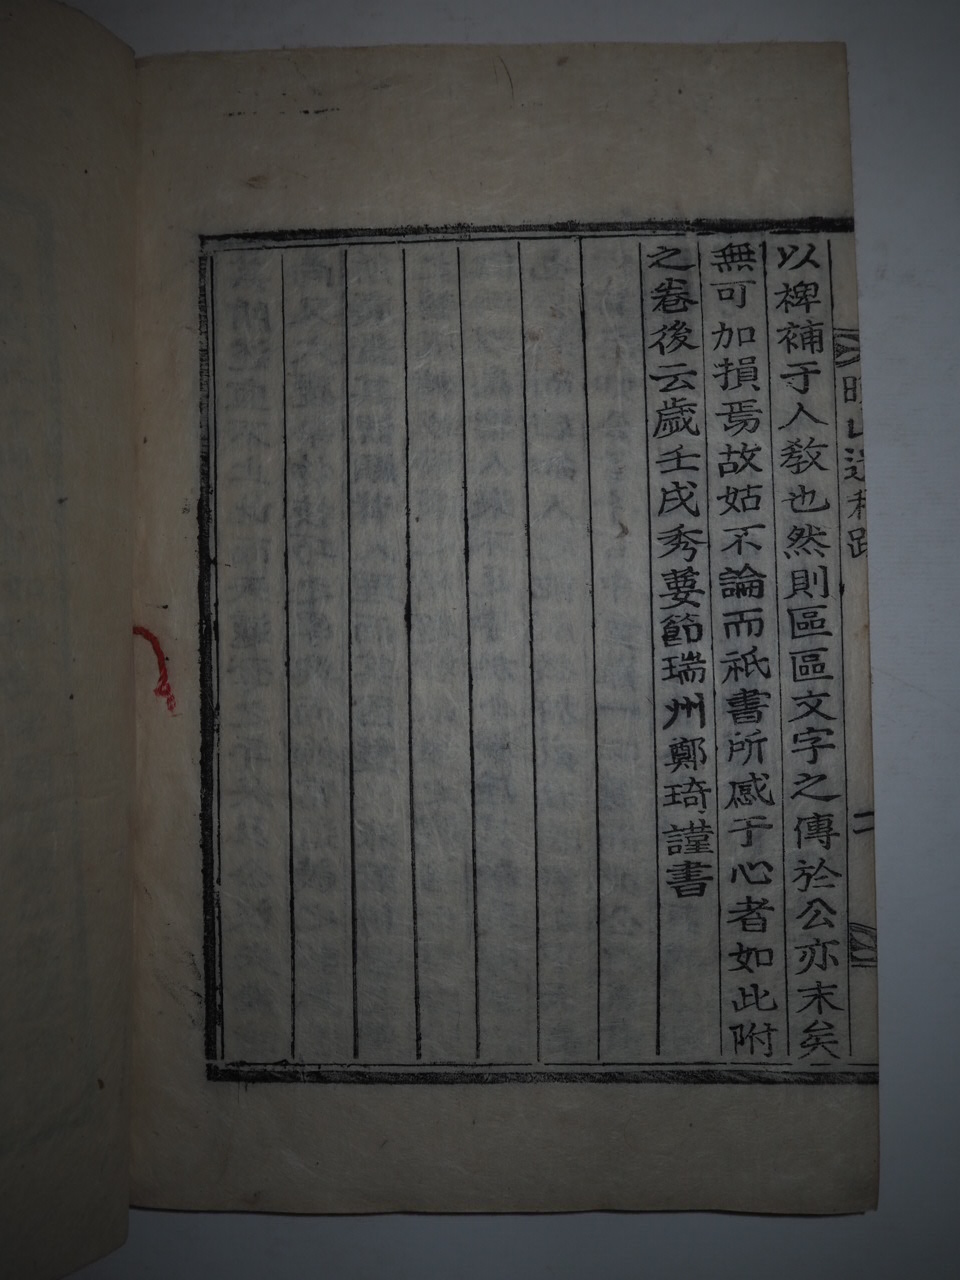 山遺稿跋
二
以椑補于人教也然則區區文字之傳於公亦末矣
無可加損焉故姑不論而祇書所感于心者如此附
之卷後云歲壬戌秀葽節瑞州鄭琦謹書